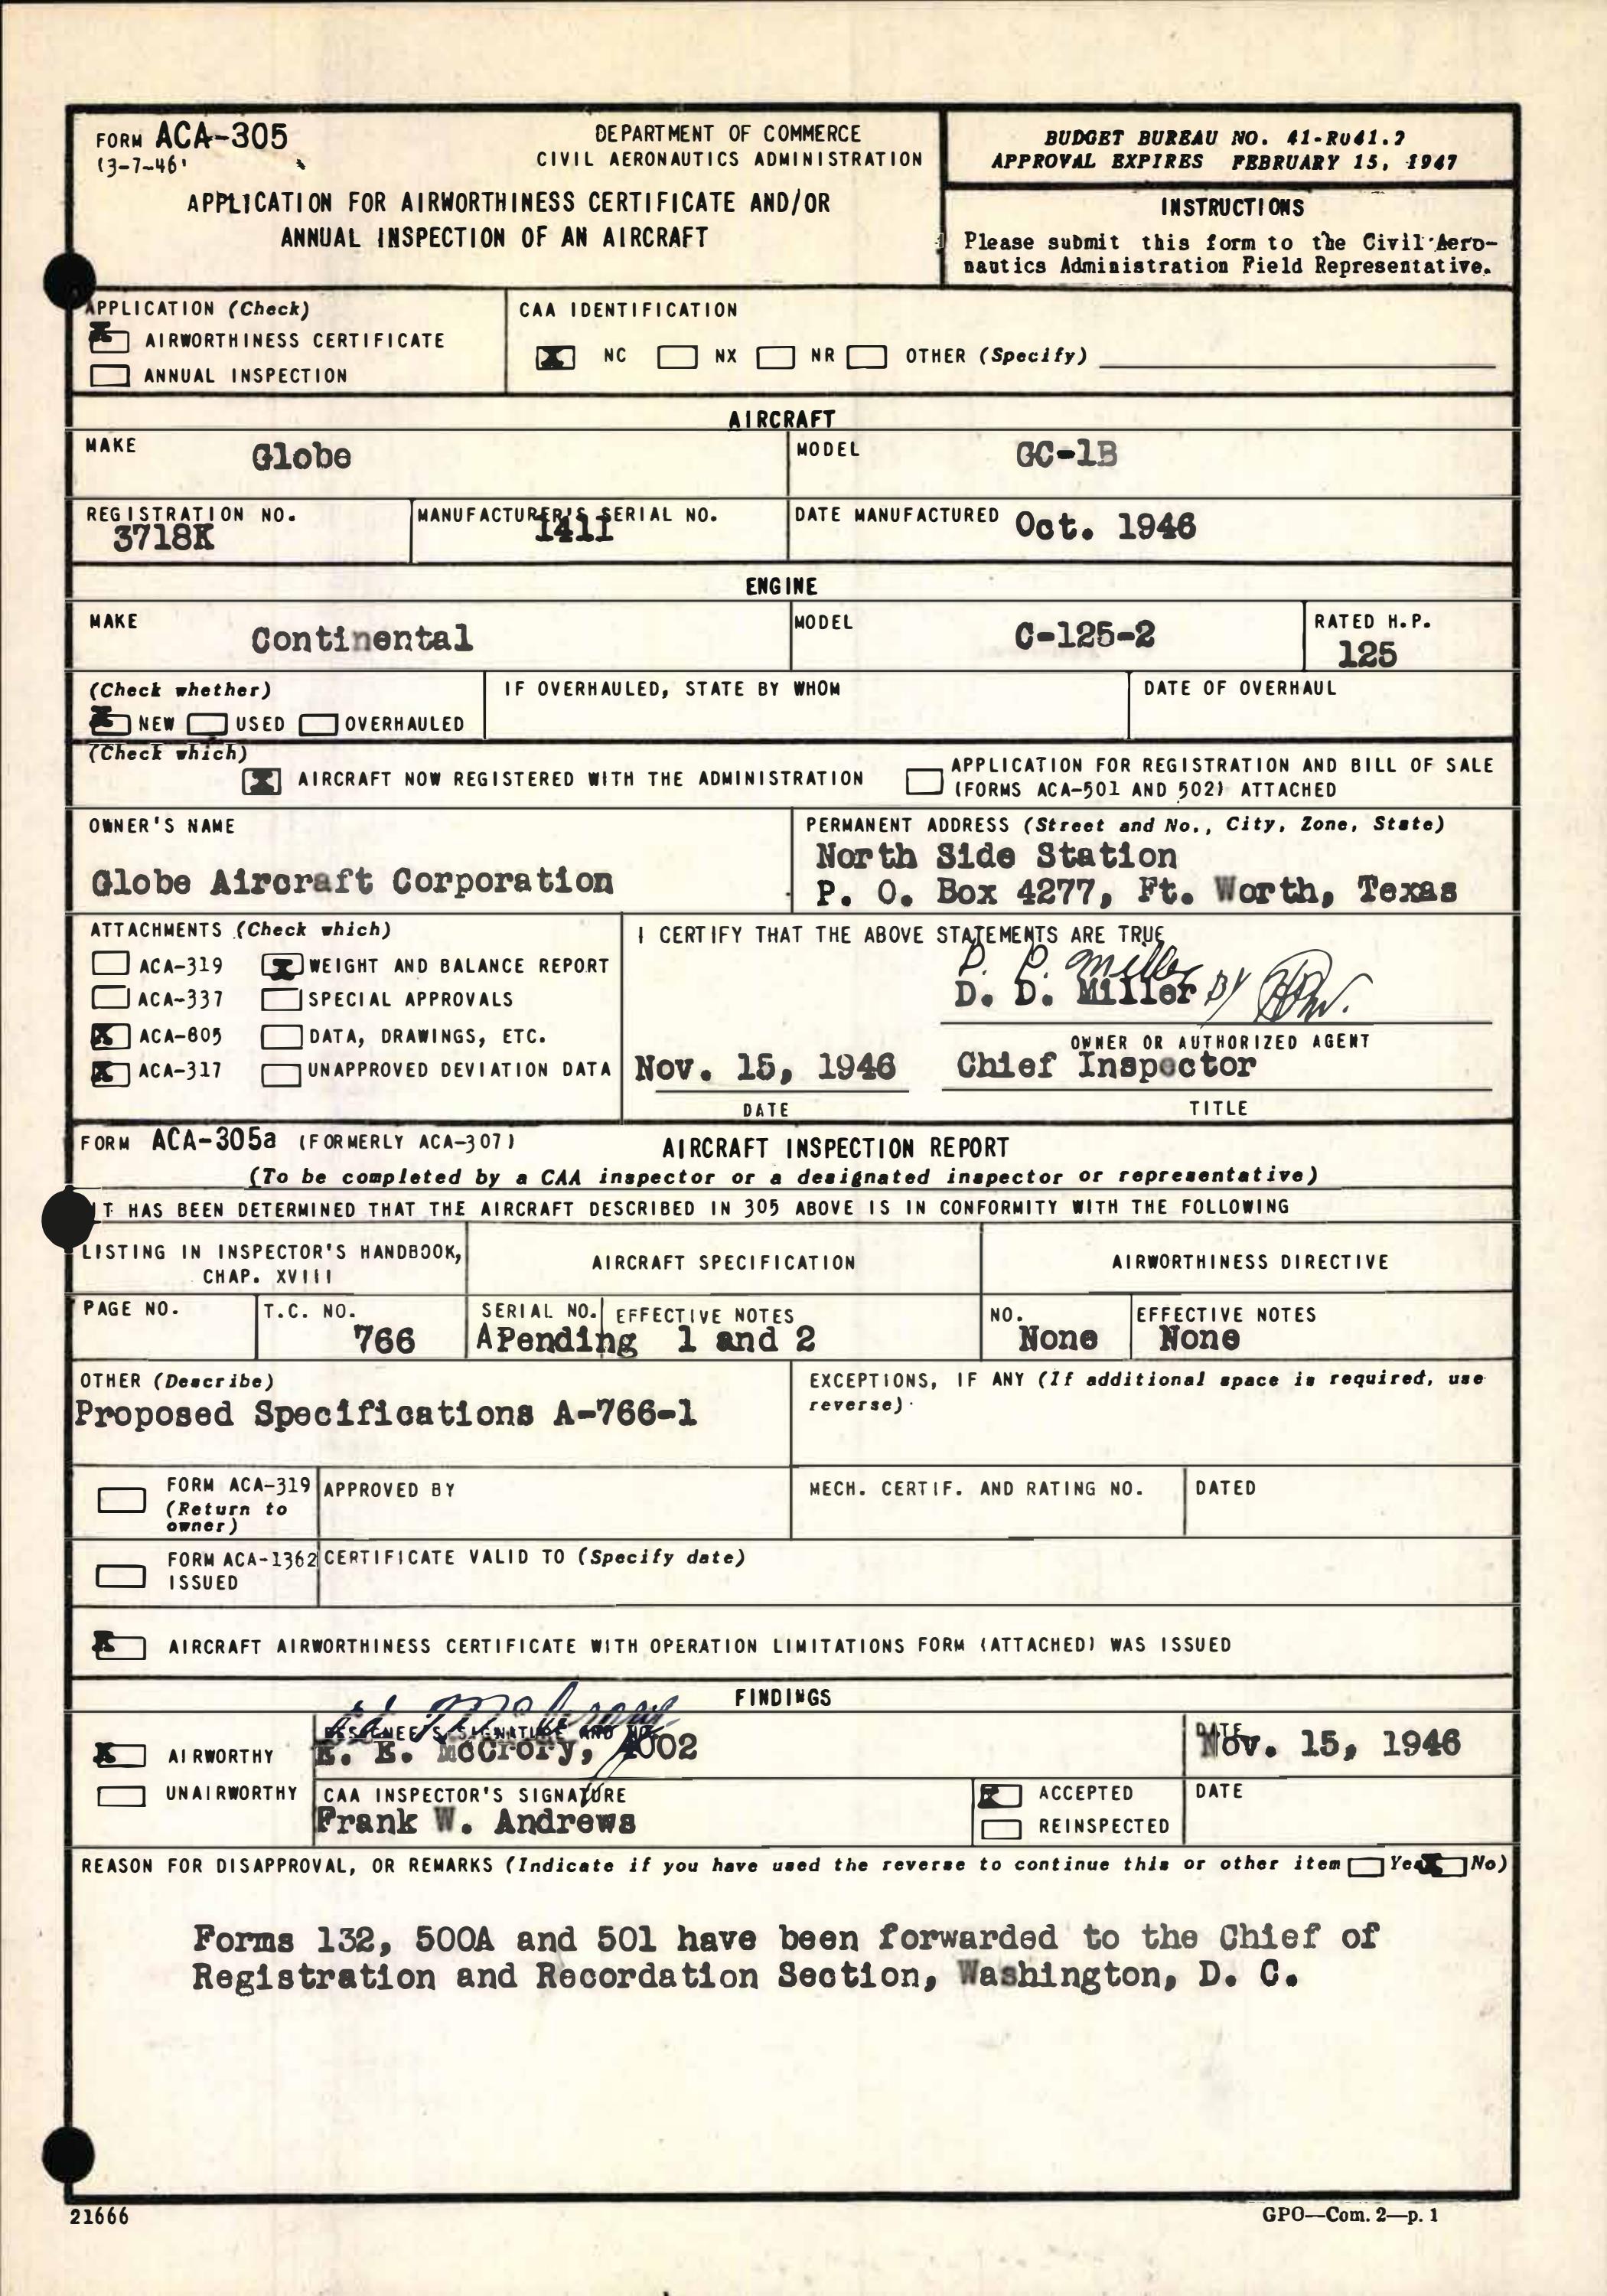 FORM ACA-305
(3-7-46)
DEPARTMENT OF COMMERCE
CIVIL AERONAUTICS ADMINISTRATION
APPLICATION FOR AIRWORTHINESS CERTIFICATE AND/OR
ANNUAL INSPECTION OF AN AIRCRAFT
BUDGET BUREAU NO. 41-R041.2
APPROVAL EXPIRES FEBRUARY 15, 1947
INSTRUCTIONS
Please submit this form to the Civil Aero-
nautics Administration Field Representative.
APPLICATION (Check)
X AIRWORTHINESS CERTIFICATE
ANNUAL INSPECTION
CAA IDENTIFICATION
X NC NX NR OTHER (Specify)
AIRCRAFT
MAKE Globe
MODEL GC-1B
REGISTRATION NO.
3718K
MANUFACTURER'S SERIAL NO.
1411
DATE MANUFACTURED Oct. 1946
ENGINE
MAKE Continental
MODEL C-125-2
RATED H.P.
125
(Check whether)
X NEW USED OVERHAULED
IF OVERHAULED, STATE BY WHOM
DATE OF OVERHAUL
(Check which)
X AIRCRAFT NOW REGISTERED WITH THE ADMINISTRATION
APPLICATION FOR REGISTRATION AND BILL OF SALE
(FORMS ACA-501 AND 502) ATTACHED
OWNER'S NAME
Globe Aircraft Corporation
PERMANENT ADDRESS (Street and No., City, Zone, State)
North Side Station
P. O. Box 4277, Ft. Worth, Texas
ATTACHMENTS (Check which)
ACA-319 X WEIGHT AND BALANCE REPORT
ACA-337 SPECIAL APPROVALS
X ACA-805 DATA, DRAWINGS, ETC.
X ACA-317 UNAPPROVED DEVIATION DATA
I CERTIFY THAT THE ABOVE STATEMENTS ARE TRUE
D. D. Miller
D. D. Miller BY
OWNER OR AUTHORIZED AGENT
Nov. 15, 1946 Chief Inspector
DATE TITLE
FORM ACA-305a (FORMERLY ACA-307) AIRCRAFT INSPECTION REPORT
(To be completed by a CAA inspector or a designated inspector or representative)
IT HAS BEEN DETERMINED THAT THE AIRCRAFT DESCRIBED IN 305 ABOVE IS IN CONFORMITY WITH THE FOLLOWING
LISTING IN INSPECTOR'S HANDBOOK,
CHAP. XVIII
AIRCRAFT SPECIFICATION
AIRWORTHINESS DIRECTIVE
PAGE NO.
T.C. NO.
766
SERIAL NO. EFFECTIVE NOTES
APending 1 and 2
NO.
None
EFFECTIVE NOTES
None
OTHER (Describe)
Proposed Specifications A-766-1
EXCEPTIONS, IF ANY (If additional space is required, use
reverse)
FORM ACA-319
(Return to
owner)
APPROVED BY
MECH. CERTIF. AND RATING NO.
DATED
FORM ACA-1362
ISSUED
CERTIFICATE VALID TO (Specify date)
X AIRCRAFT AIRWORTHINESS CERTIFICATE WITH OPERATION LIMITATIONS FORM (ATTACHED) WAS ISSUED
FINDINGS
X AIRWORTHY
UNAIRWORTHY
DESIGNEE'S SIGNATURE AND NO.
E. E. McCrory, 4002
DATE
Nov. 15, 1946
CAA INSPECTOR'S SIGNATURE
Frank W. Andrews
X ACCEPTED
REINSPECTED
DATE
REASON FOR DISAPPROVAL, OR REMARKS (Indicate if you have used the reverse to continue this or other item Yes X No)
Forms 132, 500A and 501 have been forwarded to the Chief of
Registration and Recordation Section, Washington, D. C.
21666
GPO—Com. 2—p. 1